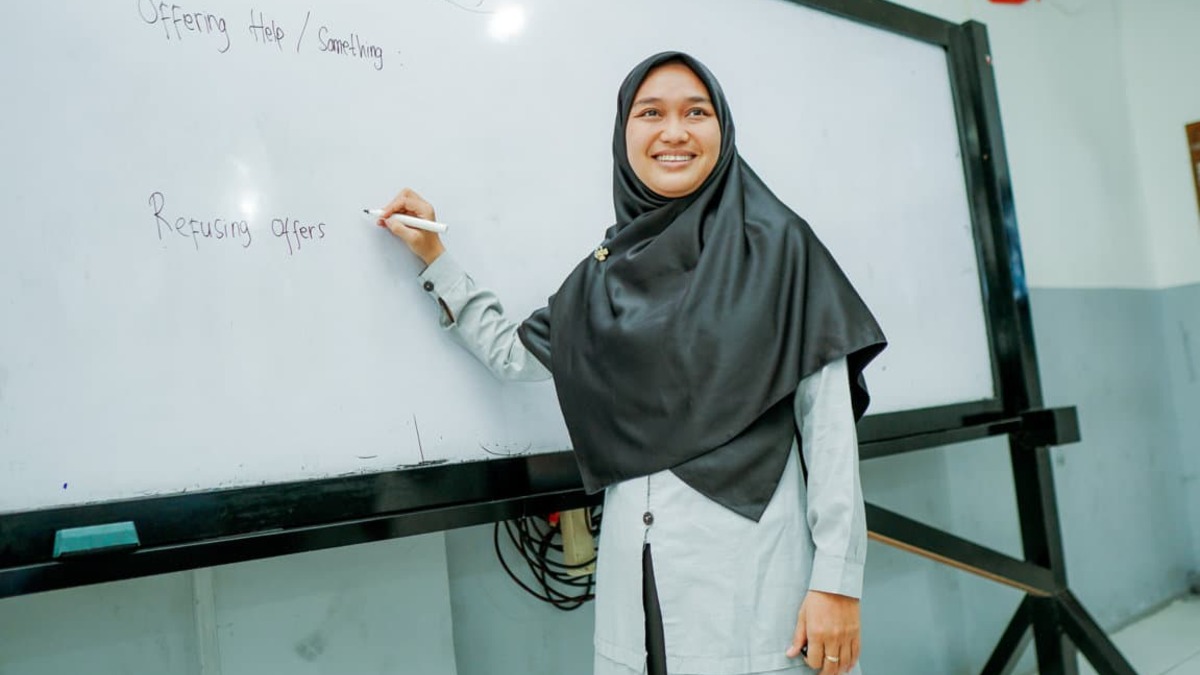 Offering Help / Something :
Refusing offers